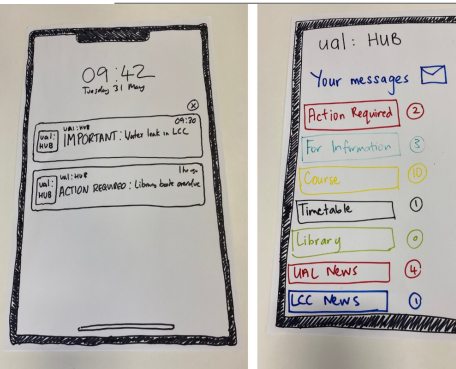 09:42
Tuesday 31 May
x
09:30
ual: HUB
ual: HUB
IMPORTANT: Water leak in LCC
1hr ago
ual: HUB
ual: HUB
ACTION REQUIRED: Library book overdue
ual: HUB
Your messages
Action Required 2
For Information 3
Course 10
Timetable 1
Library 0
UAL News 4
LCC News 1